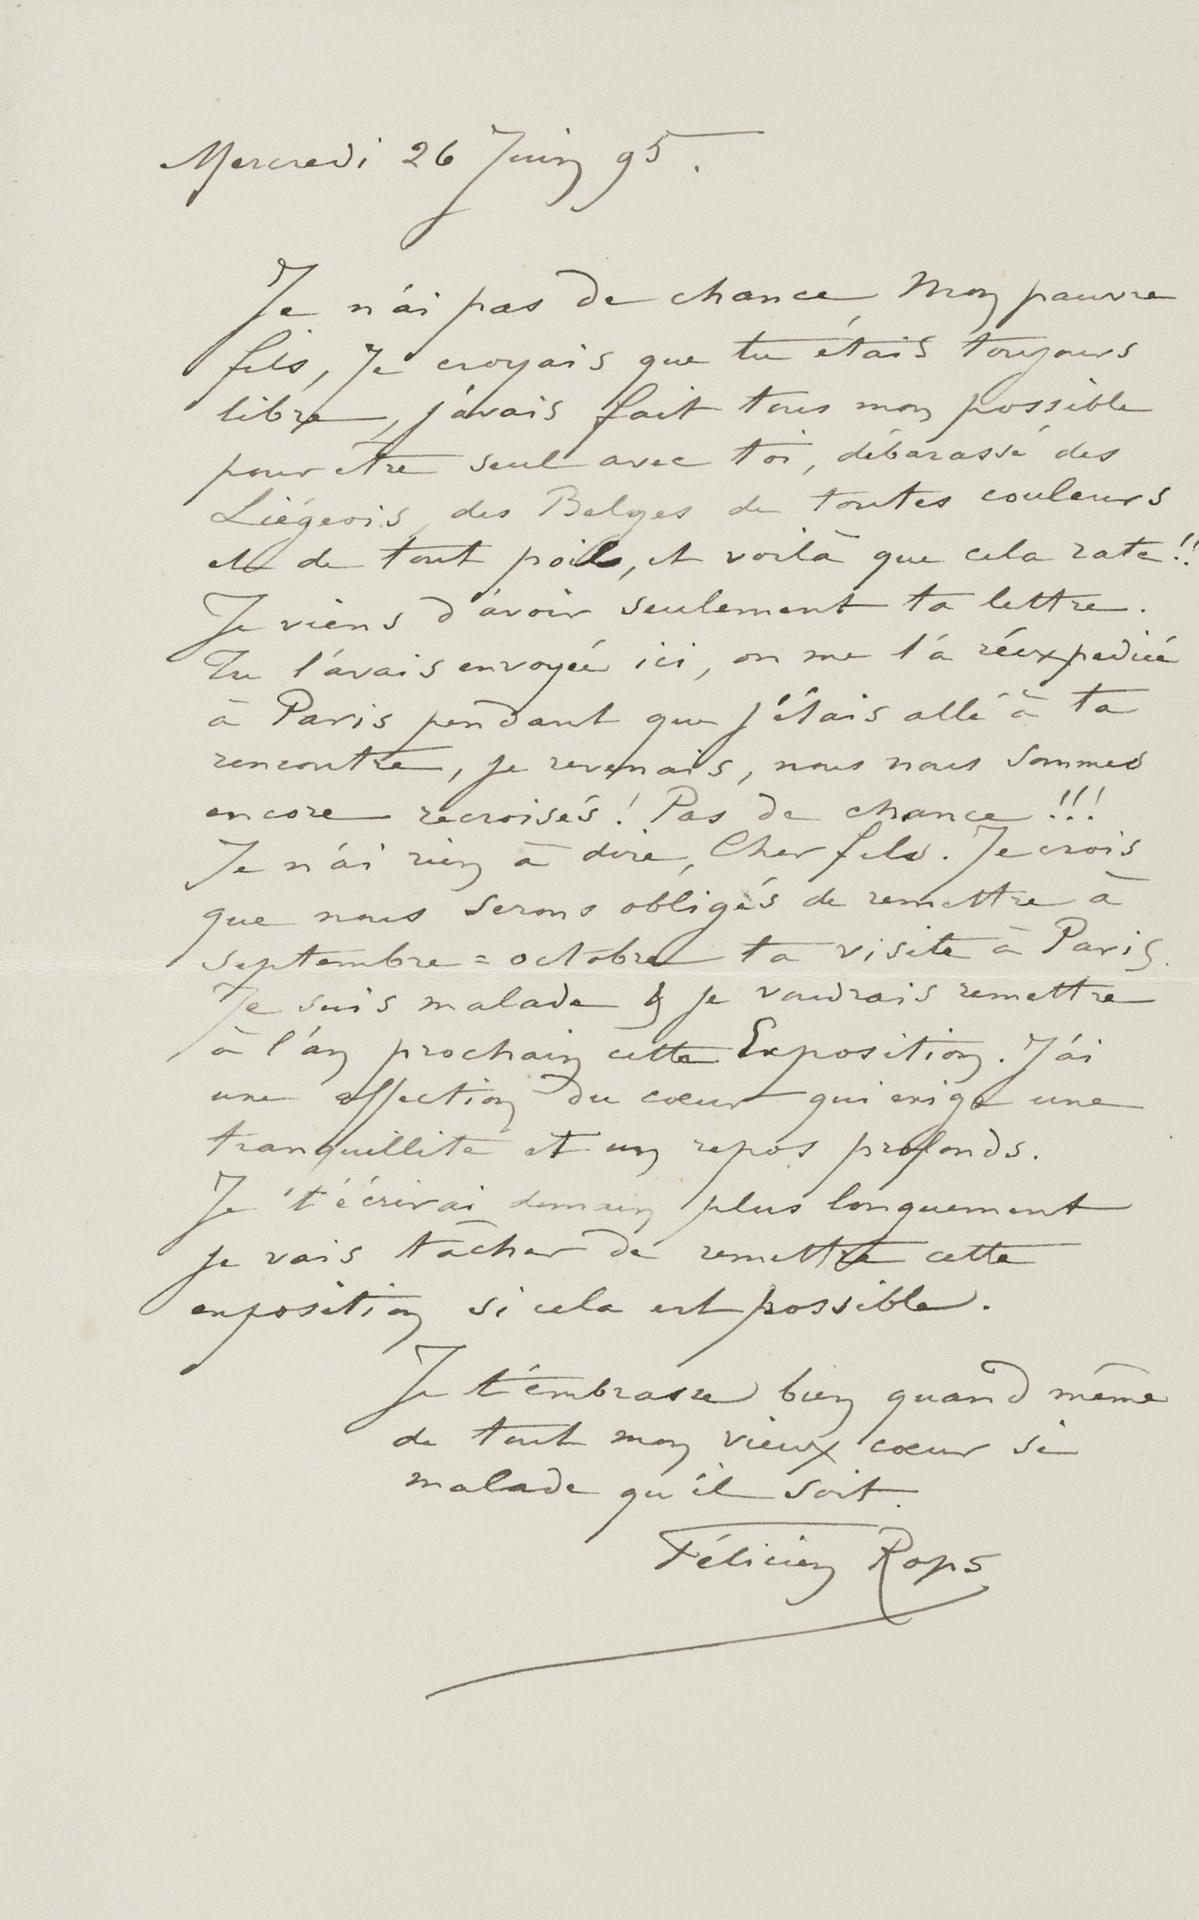 Mercredi 26 Juin 95.
Je n'ai pas de chance Mon pauvre
fils, Je croyais que tu étais toujours
libre, j'avais fait tous mon possible
pour être seul avec toi, débarassé des
Liégeois, des Belges de toutes couleurs
et de tout poils, et voilà que cela rate!!
Je viens d'avoir seulement ta lettre.
Tu l'avais envoyée ici, on me l'a réexpediée
à Paris pendant que j'étais allé à ta
rencontre, je revenais, nous nous sommes
encore recroisés! Pas de chance!!!
Je n'ai rien à dire, Cher fils. Je crois
que nous serons obligés de remettre à
septembre = octobre ta visite à Paris.
Je suis malade & je voudrais remettre
à l'an prochain cette Exposition. J'ai
une affection du cœur qui exige une
tranquillité et un repos profonds.
Je t'écrirai demain plus longuement
je vais tâcher de remettre cette
exposition si cela est possible.
Je t'embrasse bien quand même
de tout mon vieux cœur si
malade qu'il soit.
Félicien Rops